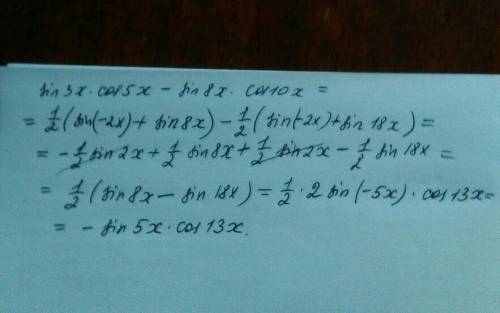 sin 3x · cos 5x − sin 8x · cos 10x =
= 1/2 (sin(−2x) + sin 8x) − 1/2 (sin(−2x) + sin 18x) =
= − 1/2 sin 2x + 1/2 sin 8x + 1/2 sin 2x − 1/2 sin 18x =
= 1/2 (sin 8x − sin 18x) = 1/2 · 2 sin(−5x) · cos 13x =
= − sin 5x · cos 13x.